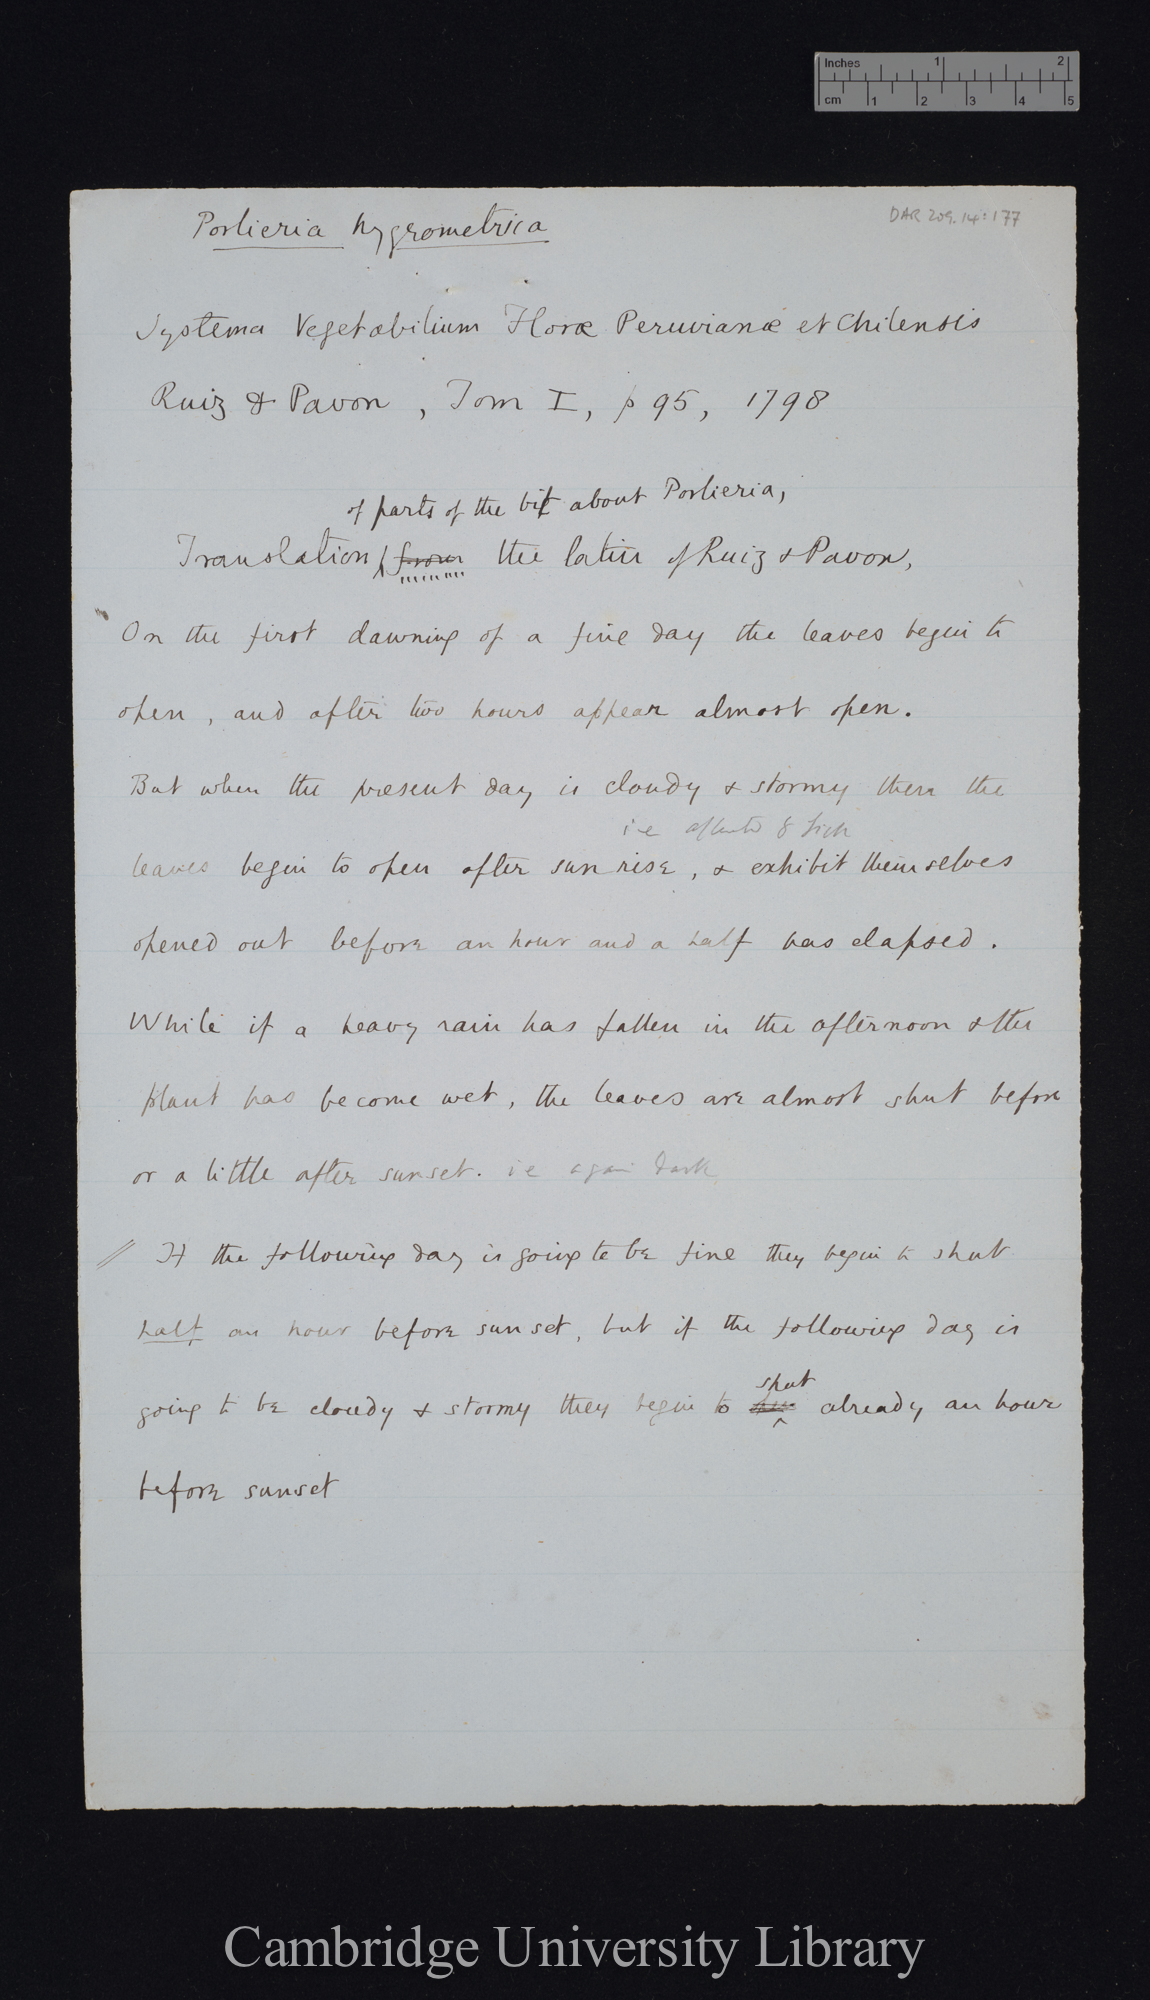 Inches 1 2
cm 1 2 3 4 5
Porlieria hygrometrica
DAR 209.14:177
Systema Vegetabilium Floræ Peruvianæ et Chilensis
Ruiz & Pavon, Tom I, p 95, 1798
of parts of the bit about Porlieria,
Translation from the latin of Ruiz & Pavon,
On the first dawning of a fine day the leaves begin to
open, and after two hours appear almost open.
But when the present day is cloudy & stormy then the
i.e
leaves begin to open after sunrise, & exhibit themselves
opened out before an hour and a half has elapsed.
While if a heavy rain has fallen in the afternoon & the
plant has become wet, the leaves are almost shut before
or a little after sunset. i e again dark
// If the following day is going to be fine they begin to shut
half an hour before sunset, but if the following day is
shut
going to be cloudy & stormy they begin to already an hour
before sunset
Cambridge University Library